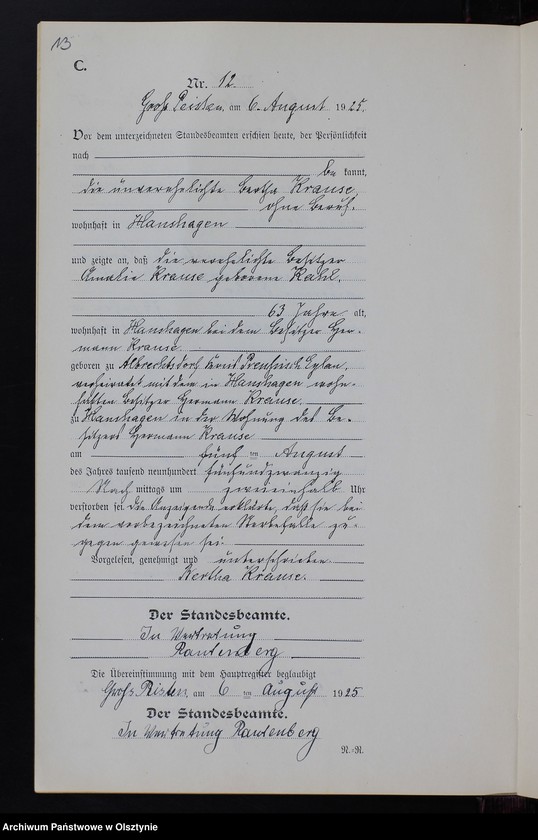 13
C.
Nr. 12.
Groß Peisten, am 6. August 1925.
Vor dem unterzeichneten Standesbeamten erschien heute, der Persönlichkeit
nach
be kannt,
die unverehelichte Bertha Krause,
ohne Beruf.
wohnhaft in Hanshagen
und zeigte an, daß die verehelichte Besitzer
Amalie Krause geborene Kahl.
63 Jahre alt,
wohnhaft in Hanshagen bei dem Besitzer Her-
mann Krause.
geboren zu Albrechtsdorf Kreis Preußisch Eylau,
verheiratet mit dem in Hanshagen wohn-
haften Besitzer Hermann Krause.
zu Hanshagen in der Wohnung des Be-
sitzers Hermann Krause
am fünf ten August
des Jahres tausend neunhundert fünfundzwanzig
Nach mittags um zweieinhalb Uhr
verstorben sei. Die Anzeigende erklärte, daß sie bei
dem vorbezeichneten Sterbefalle zu-
gegen gewesen sei.
Vorgelesen, genehmigt und unterschrieben
Bertha Krause.
Der Standesbeamte.
In Vertretung
Rautenberg
Die Übereinstimmung mit dem Hauptregister beglaubigt
Groß Peisten, am 6 ten August 1925
Der Standesbeamte.
In Vertretung Rautenberg
N.=R.
Archiwum Państwowe w Olsztynie